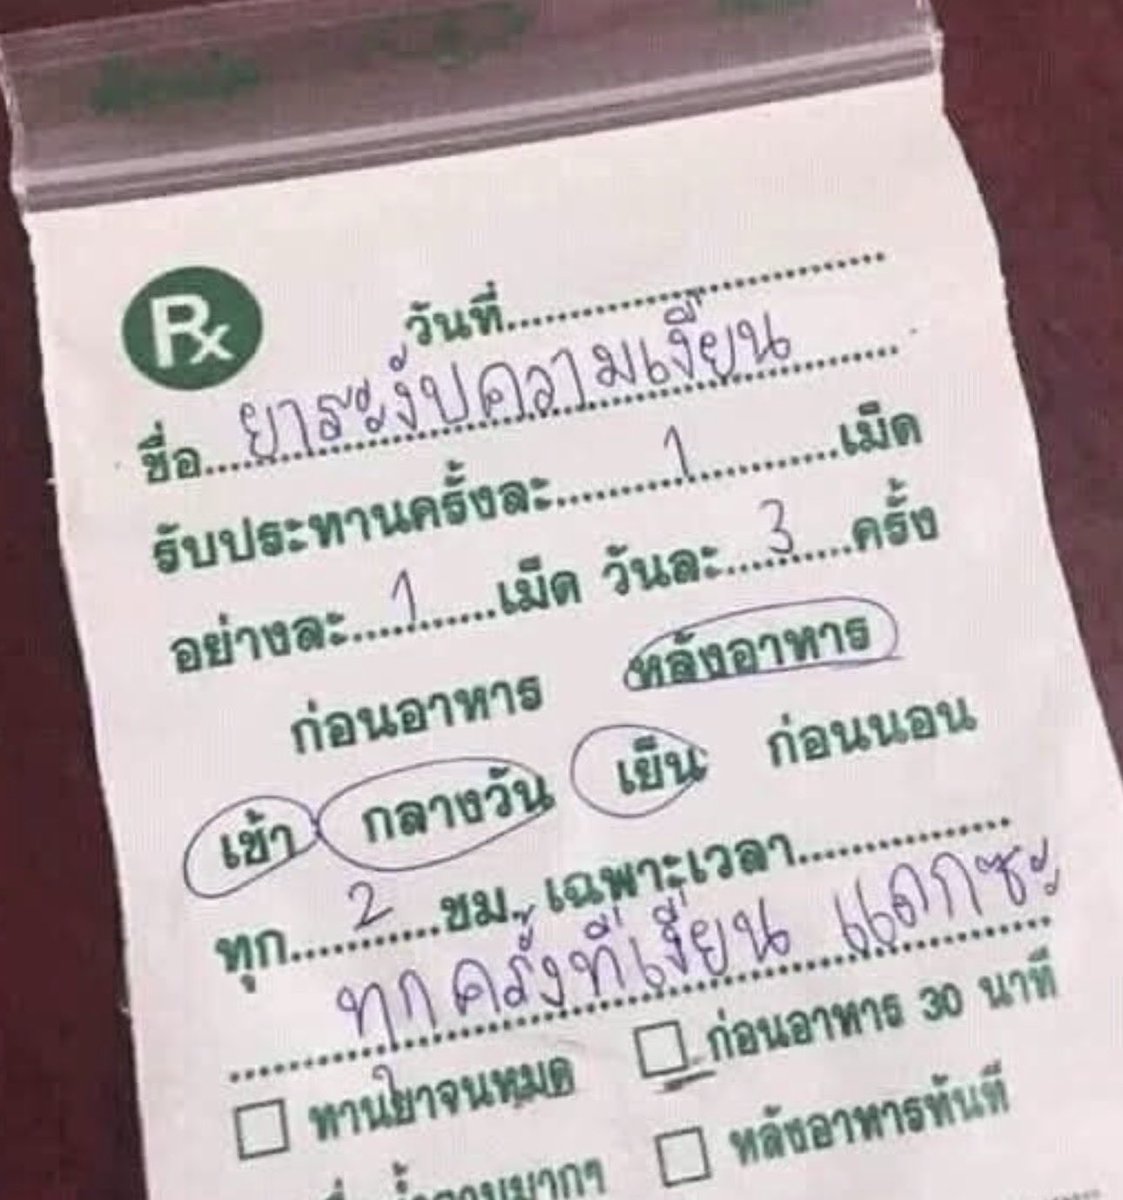 Rx
วันที่
ชื่อ ยาระงับความเงี่ยน
รับประทานครั้งละ 1 เม็ด
อย่างละ 1 เม็ด วันละ 3 ครั้ง
ก่อนอาหาร หลังอาหาร
เช้า กลางวัน เย็น ก่อนนอน
ทุก 2 ชม. เฉพาะเวลา
ทุกครั้งที่เงี่ยน แดกซะ
ทานยาจนหมด ก่อนอาหาร 30 นาที
หลังอาหารทันที